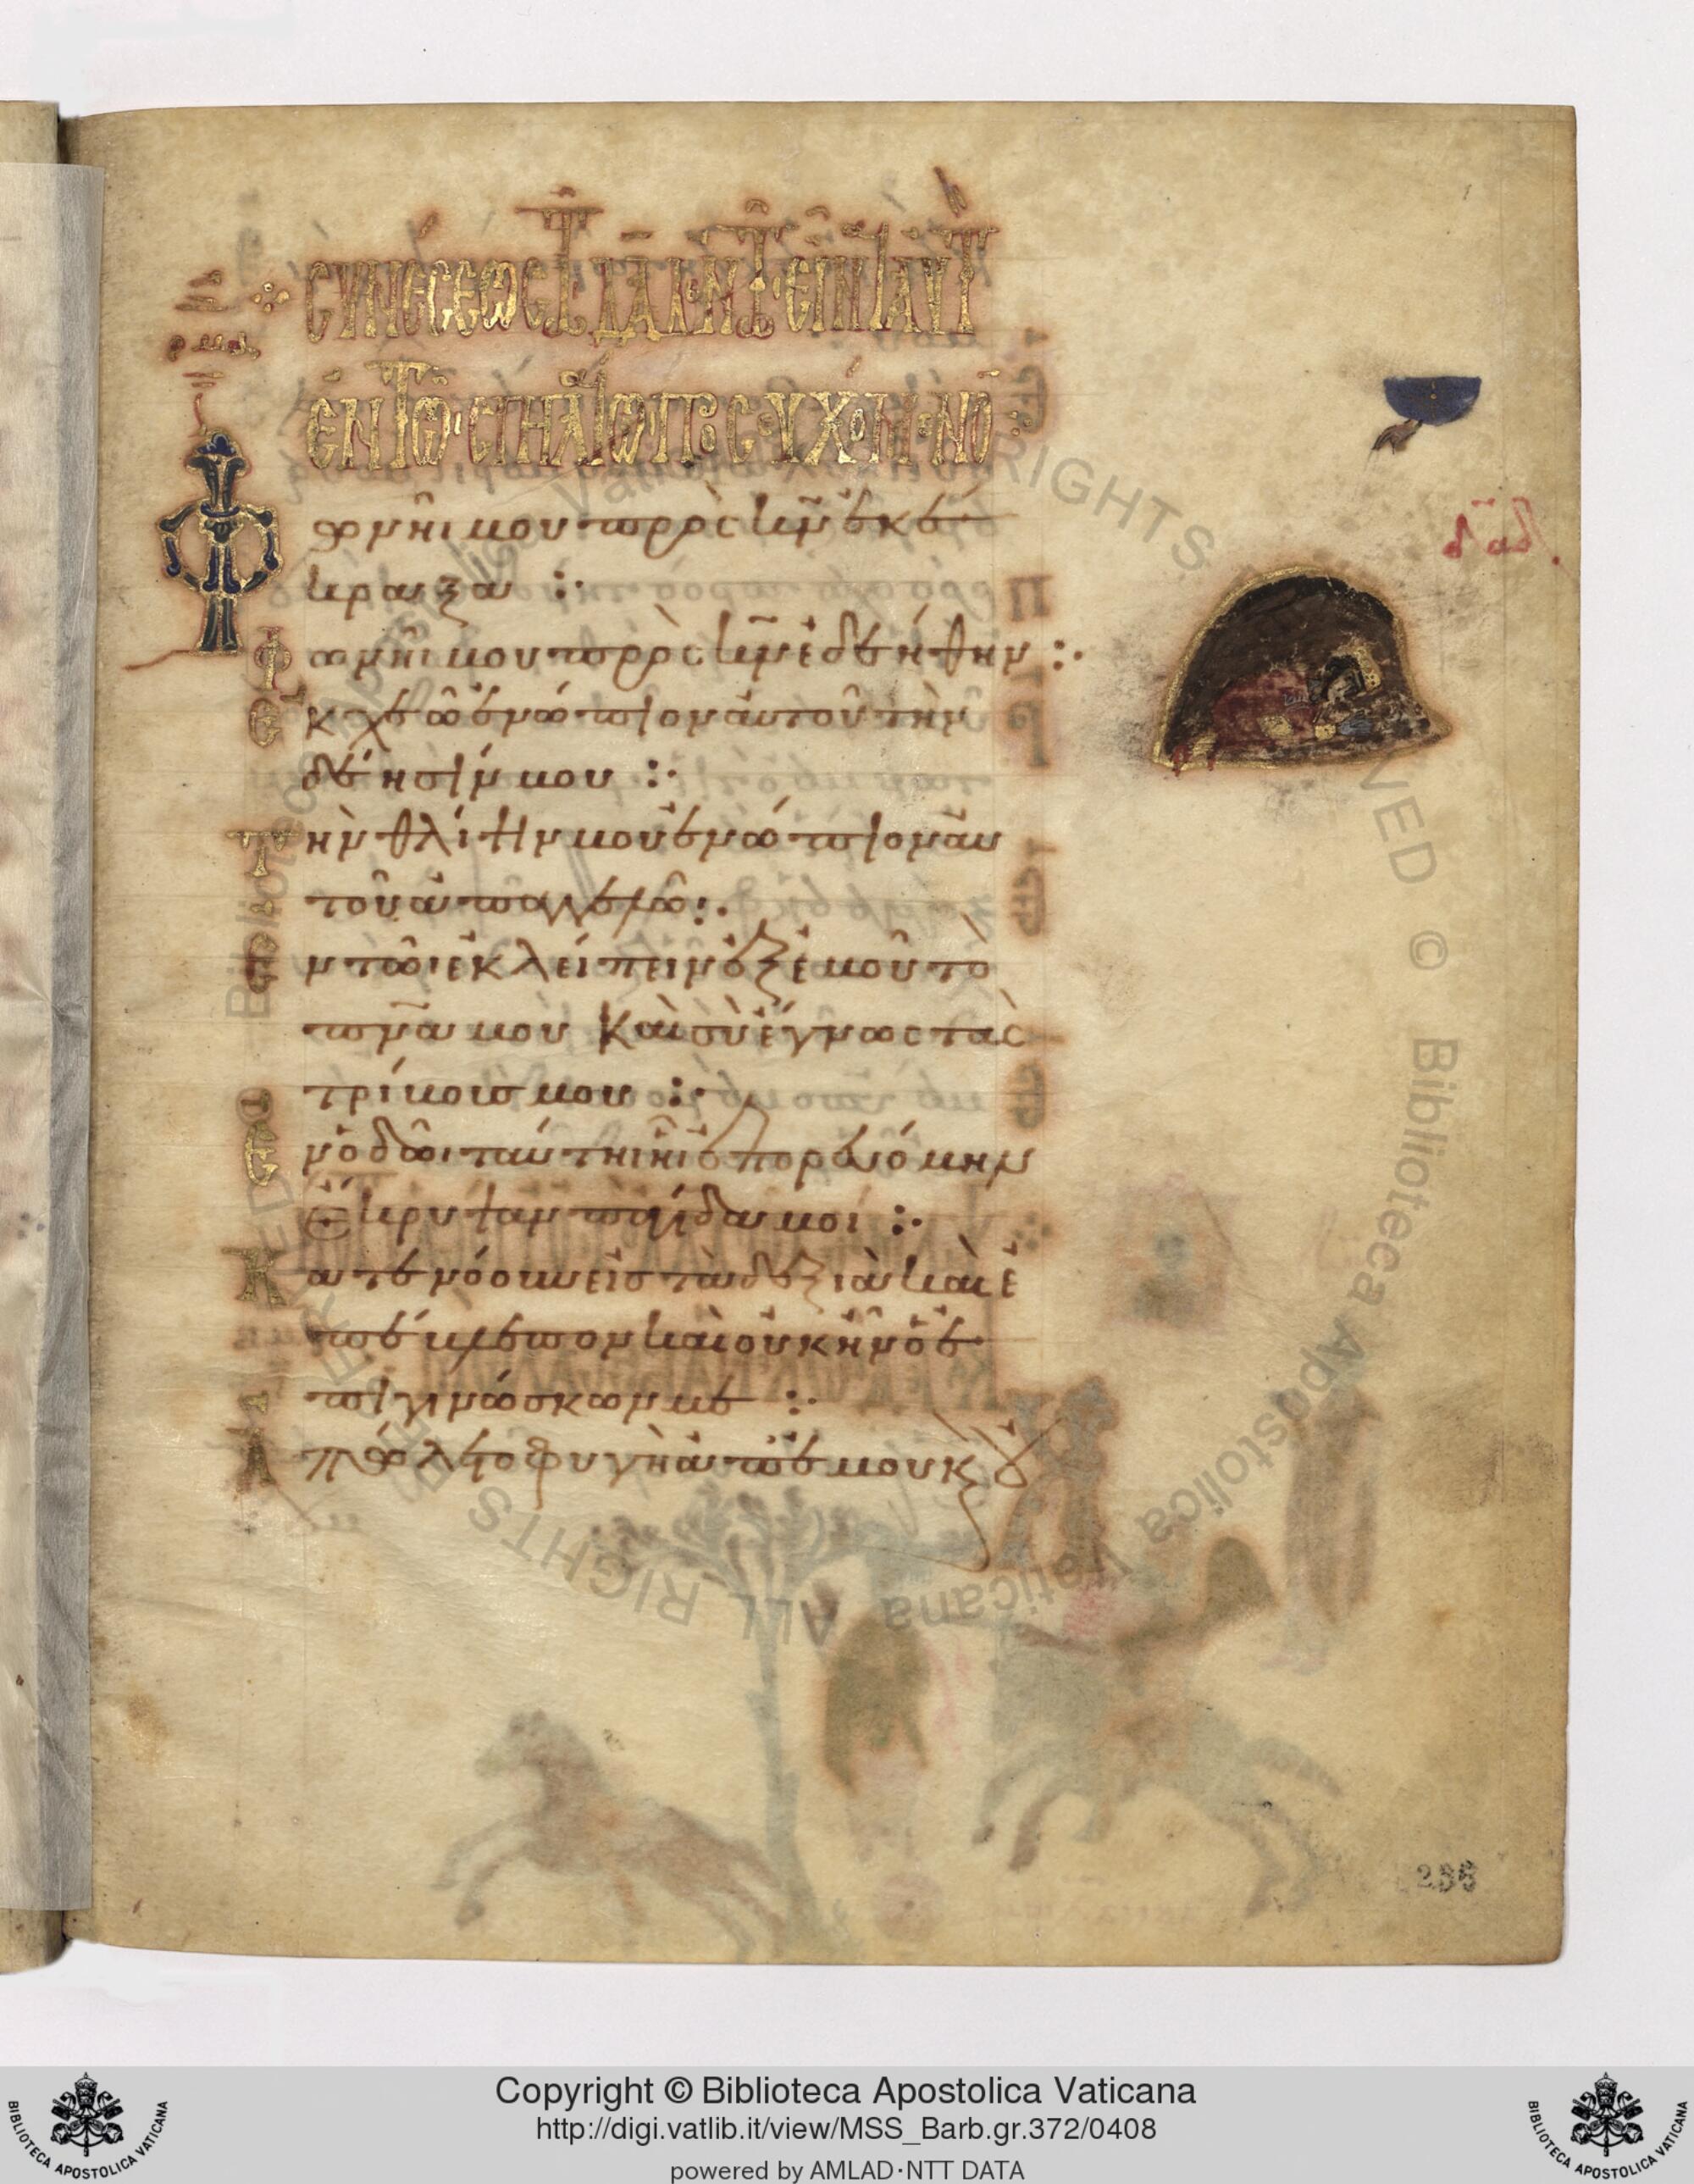 συνέσεως τῷ δαδ ἐν τῷ εἶναι αὐτ
ἐν τῷ σπηλαίω προσευχόμενον
Φωνῆι μου πρὸς κν ἐκέ
κραξα :·
Φωνῆι μου πρὸς κν ἐδεήθην :·
δαδ
Ἐκχεῶ ἐνώπιον αὐτοῦ τὴν
δέησίν μου :·
Τὴν θλίψιν μου ἐνώπιον αὐ
τοῦ ἀπαγγελῶ :·
Ἐν τῶι ἐκλείπειν ἐξ ἐμοῦ τὸ
πνα μου καὶ σὺ ἔγνως τὰς
τρίβους μου :·
Ἐν ὁδῶι ταύτηι ἧι ἐπορευόμην
ἔκρυψαν παγίδα μοι :·
Κατενόουν εἰς τὰ δεξιὰ καὶ ἐ
πέβλεπον καὶ οὐκ ἦν ὁ ἐ
πιγινώσκων με :·
Ἀπώλετο φυγὴ ἀπ' ἐμοῦ κ οὐ
236
Copyright © Biblioteca Apostolica Vaticana
http://digi.vatlib.it/view/MSS_Barb.gr.372/0408
powered by AMLAD·NTT DATA
BIBLIOTECA APOSTOLICA VATICANA
BIBLIOTECA APOSTOLICA VATICANA